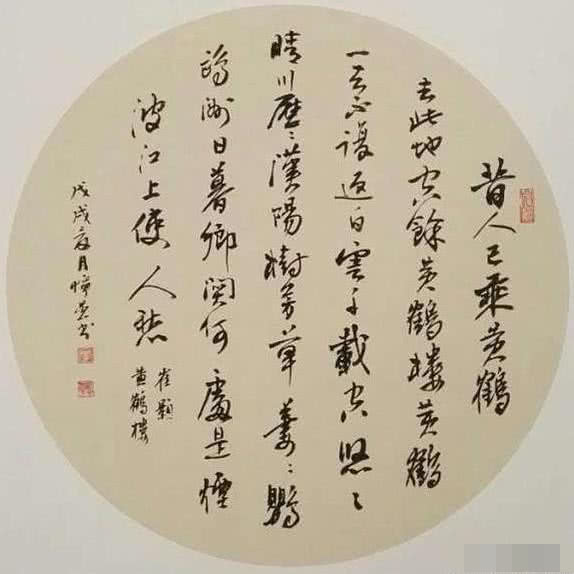 昔人已乘黄鶴
去此地空餘黄鶴楼黄鶴
一去不復返白雲千載空悠〻
晴川歷〻漢陽樹芳草萋〻鸚
鵡洲日暮鄉関何處是煙
波江上使人愁
崔顥
黄鶴楼
戊戌夏月书